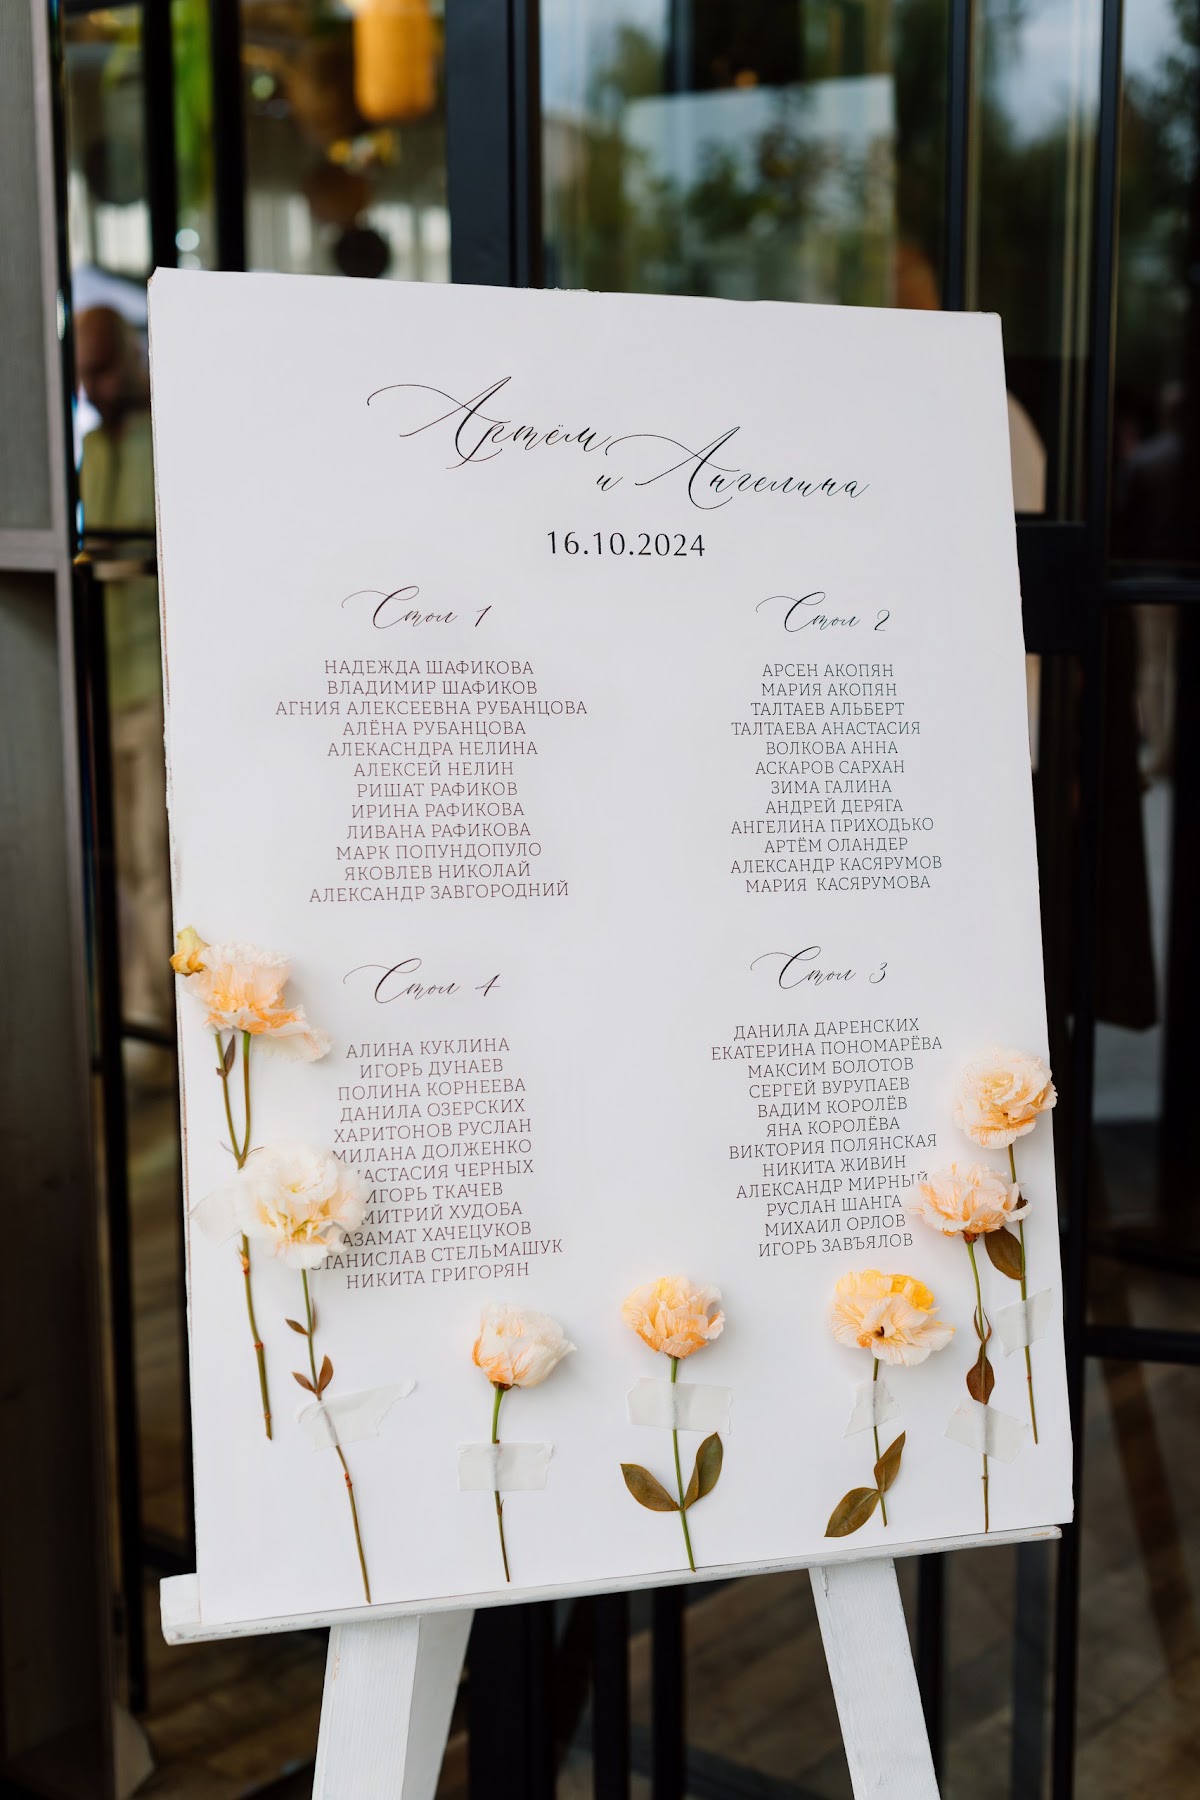 Артём
и Ангелина
16.10.2024
Стол 1
НАДЕЖДА ШАФИКОВА
ВЛАДИМИР ШАФИКОВ
АГНИЯ АЛЕКСЕЕВНА РУБАНЦОВА
АЛЁНА РУБАНЦОВА
АЛЕКАСНДРА НЕЛИНА
АЛЕКСЕЙ НЕЛИН
РИШАТ РАФИКОВ
ИРИНА РАФИКОВА
ЛИВАНА РАФИКОВА
МАРК ПОПУНДОПУЛО
ЯКОВЛЕВ НИКОЛАЙ
АЛЕКСАНДР ЗАВГОРОДНИЙ
Стол 2
АРСЕН АКОПЯН
МАРИЯ АКОПЯН
ТАЛТАЕВ АЛЬБЕРТ
ТАЛТАЕВА АНАСТАСИЯ
ВОЛКОВА АННА
АСКАРОВ САРХАН
ЗИМА ГАЛИНА
АНДРЕЙ ДЕРЯГА
АНГЕЛИНА ПРИХОДЬКО
АРТЁМ ОЛАНДЕР
АЛЕКСАНДР КАСЯРУМОВ
МАРИЯ КАСЯРУМОВА
Стол 4
АЛИНА КУКЛИНА
ИГОРЬ ДУНАЕВ
ПОЛИНА КОРНЕЕВА
ДАНИЛА ОЗЕРСКИХ
ХАРИТОНОВ РУСЛАН
МИЛАНА ДОЛЖЕНКО
АСТАСИЯ ЧЕРНЫХ
ИГОРЬ ТКАЧЕВ
МИТРИЙ ХУДОБА
АЗАМАТ ХАЧЕЦУКОВ
СТАНИСЛАВ СТЕЛЬМАШУК
НИКИТА ГРИГОРЯН
Стол 3
ДАНИЛА ДАРЕНСКИХ
ЕКАТЕРИНА ПОНОМАРЁВА
МАКСИМ БОЛОТОВ
СЕРГЕЙ ВУРУПАЕВ
ВАДИМ КОРОЛЁВ
ЯНА КОРОЛЁВА
ВИКТОРИЯ ПОЛЯНСКАЯ
НИКИТА ЖИВИН
АЛЕКСАНДР МИРНЫЙ
РУСЛАН ШАНГА
МИХАИЛ ОРЛОВ
ИГОРЬ ЗАВЪЯЛОВ